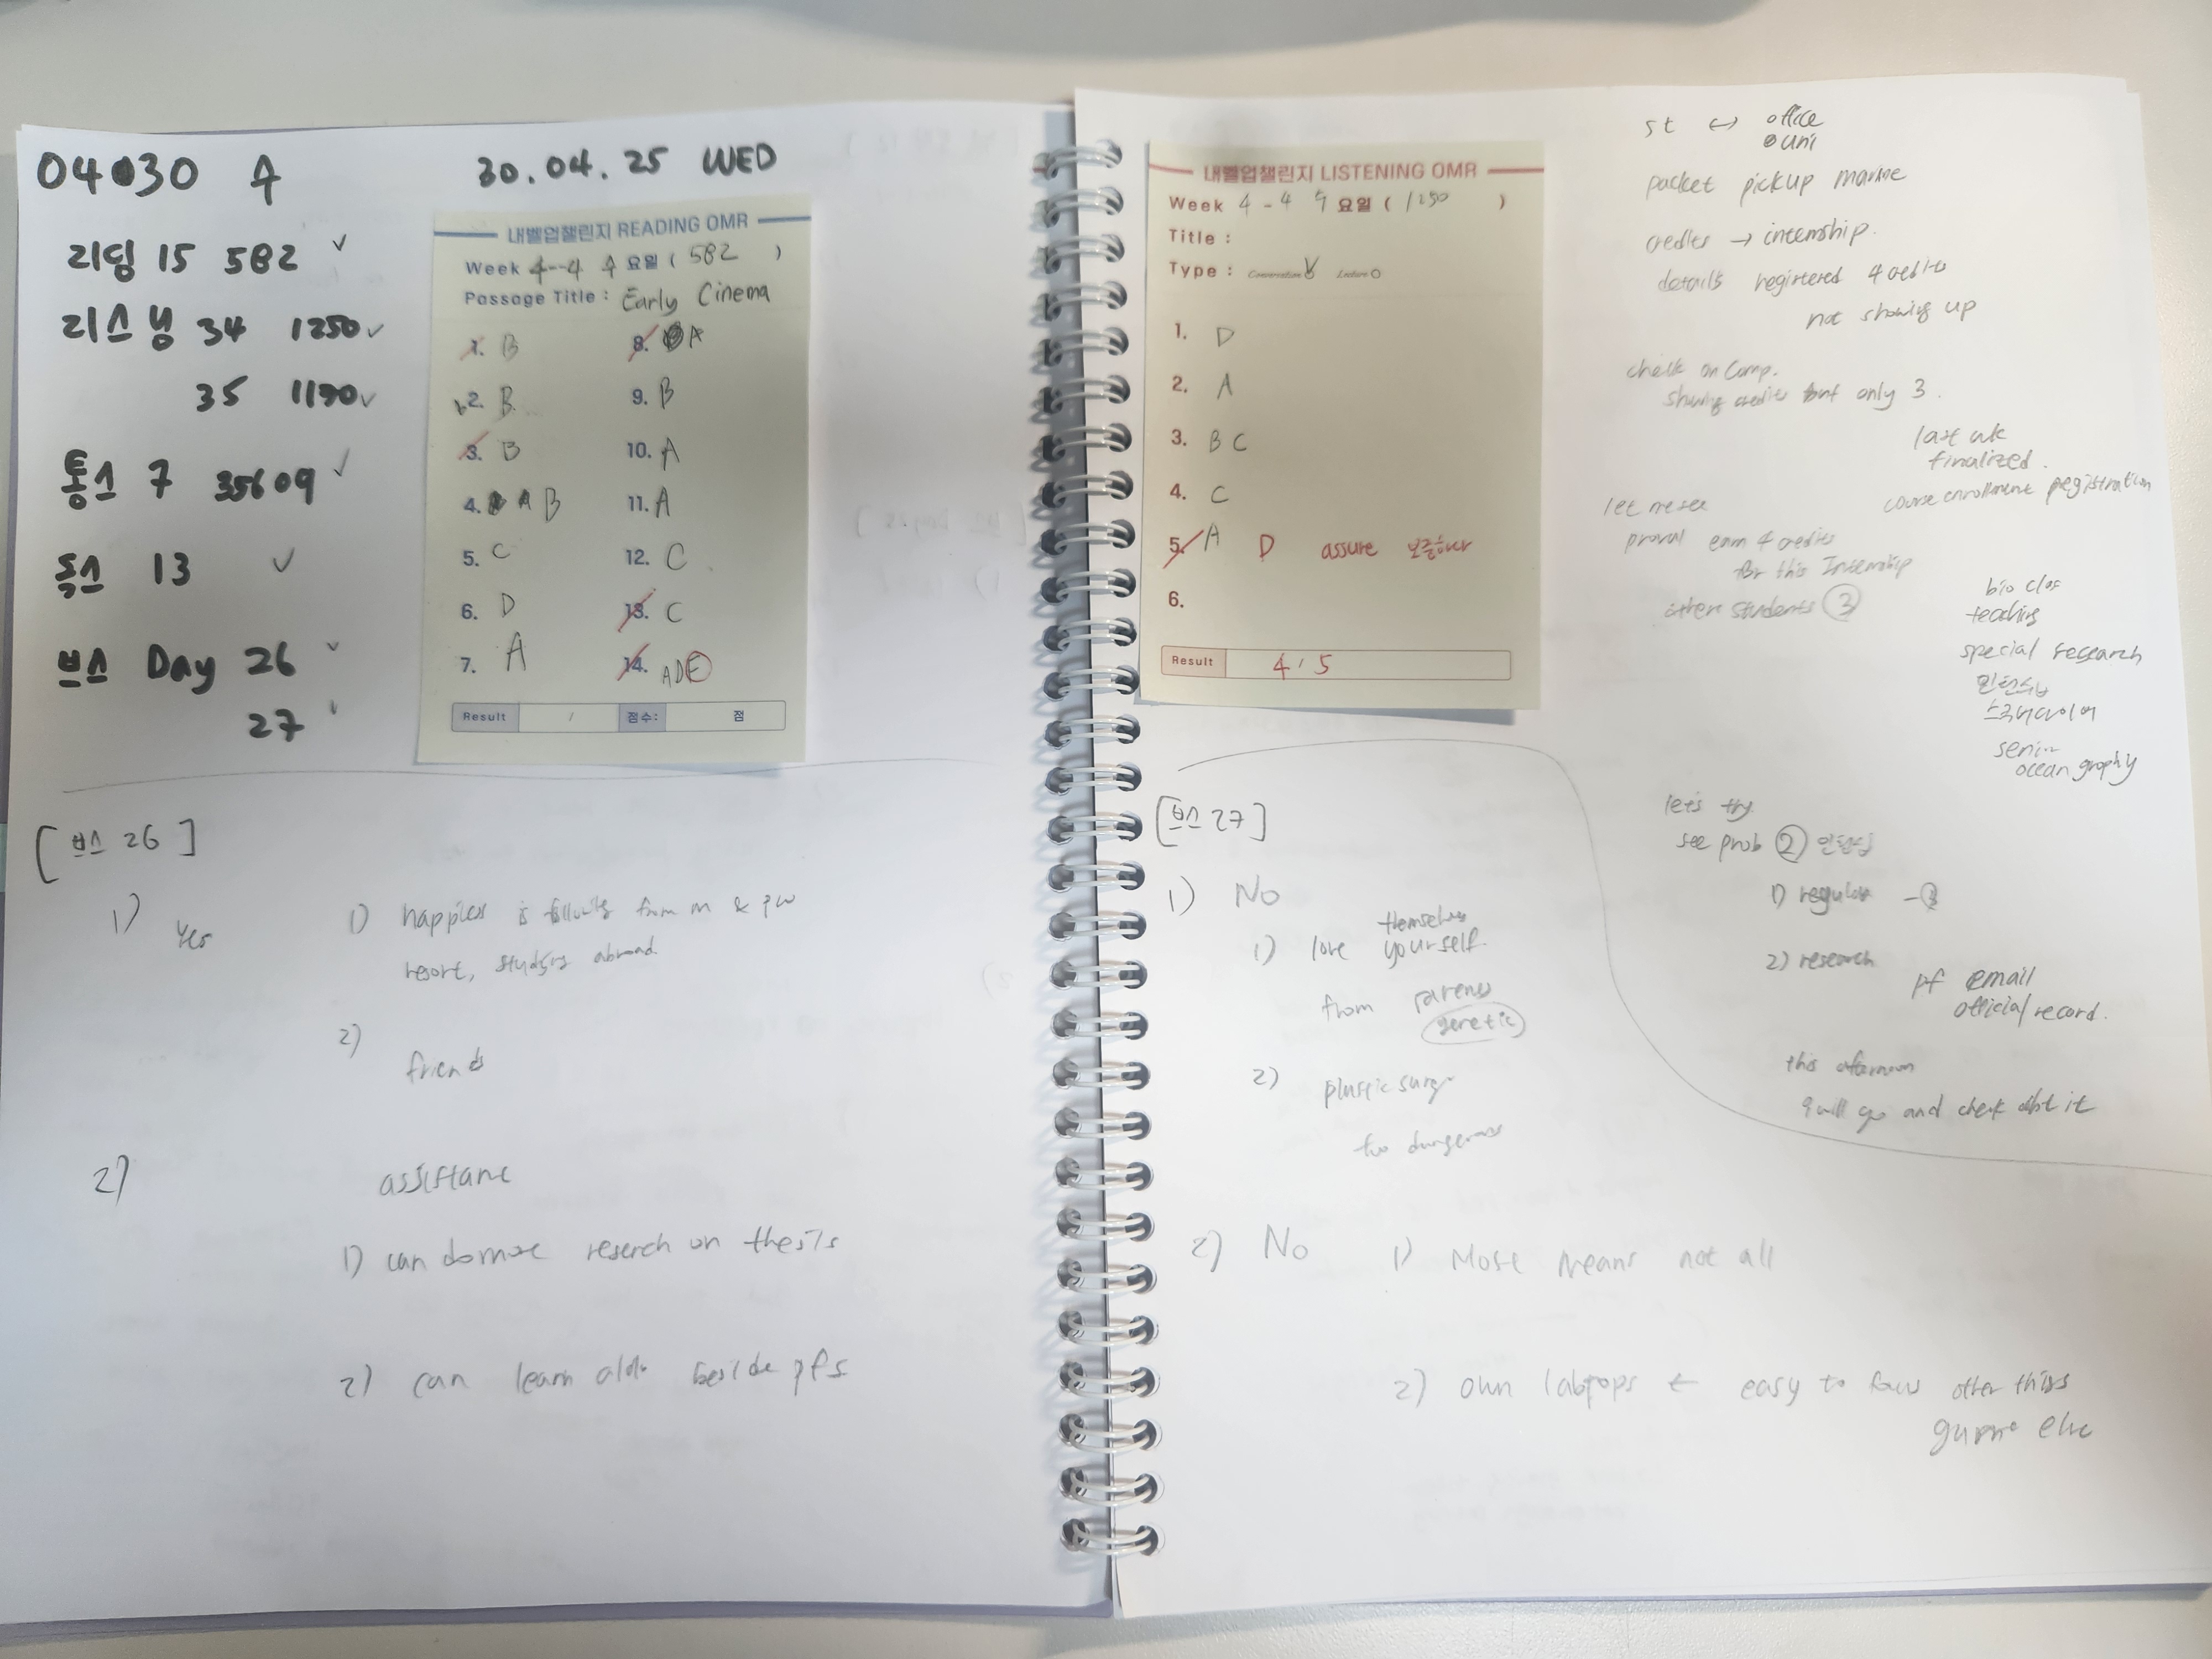 04030 수
30.04.25 WED
리딩 15 582 ✓
리스닝 34 1250 ✓
35 1190 ✓
통스 7 35609 ✓
독스 13 ✓
브스 Day 26 ✓
27 ✓
내벨업챌린지 READING OMR
Week 4-4 수 요일 ( 582 )
Passage Title : Early Cinema
1. B
2. B
3. B
4. A B
5. C
6. D
7. A
8. A
9. B
10. A
11. A
12. C
13. C
14. ADE
Result / 점수: 점
[브스 26]
1) Yes
1) happiess is following from m & pw
resort, studying abroad
2)
friends
2)
assistanc
1) can do more reserch on thesis
2) can learn beside pfs
내벨업챌린지 LISTENING OMR
Week 4-4 수 요일 ( 1250 )
Title :
Type : Conversation Lecture
1. D
2. A
3. B C
4. C
5. A D assure 보증하다
6.
Result 4/5
st ↔ office
uni
packet pickup marine
credits → internship.
details registered 4 credits
not showing up
check on comp.
showing credits but only 3.
last wk
finalized.
course enrollment registration
let me see
earn 4 credits
for this Internship
other students ③
bio clas
teaching
special research
인턴쉽
senior
ocean graphy
let's try
see prob ② 인턴쉽
1) regular - ③
2) research
pf email
official record.
this afternoon
I will go and check abt it
[브스 27]
1) No
themselves
1) love yourself.
from parents
genetic
2) plastic surg
too dangerous
2) No
1) Most means not all
2) own labtops ← easy to other things